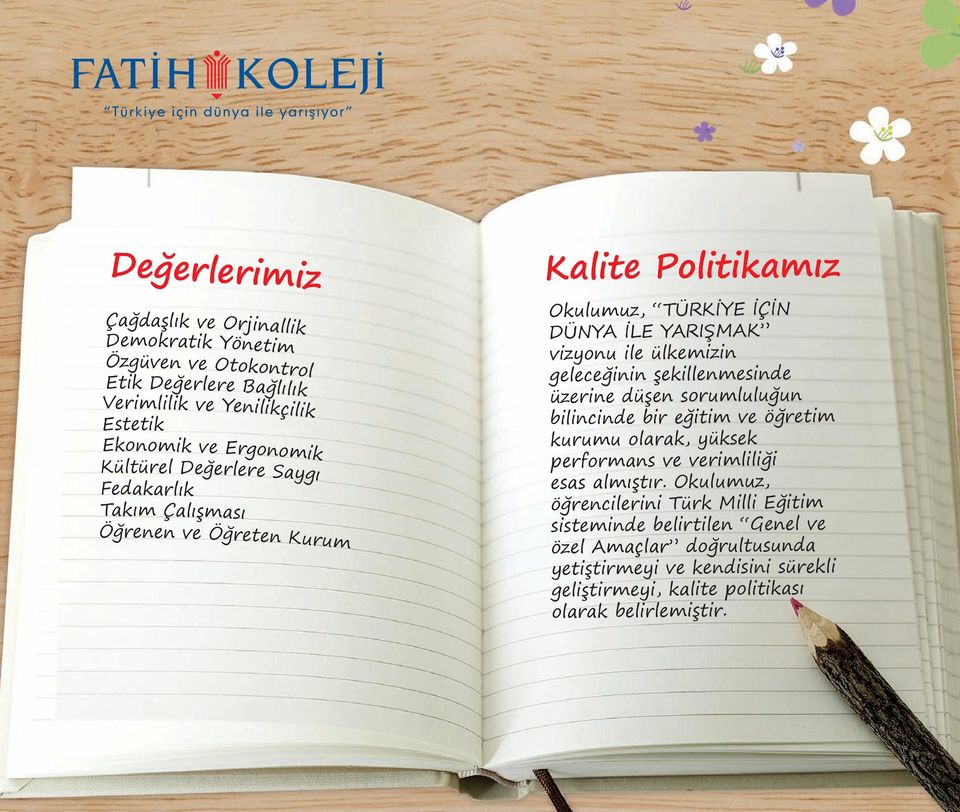 FATİH KOLEJİ
“Türkiye için dünya ile yarışıyor”
Değerlerimiz
Çağdaşlık ve Orjinallik
Demokratik Yönetim
Özgüven ve Otokontrol
Etik Değerlere Bağlılık
Verimlilik ve Yenilikçilik
Estetik
Ekonomik ve Ergonomik
Kültürel Değerlere Saygı
Fedakarlık
Takım Çalışması
Öğrenen ve Öğreten Kurum
Kalite Politikamız
Okulumuz, “TÜRKİYE İÇİN
DÜNYA İLE YARIŞMAK”
vizyonu ile ülkemizin
geleceğinin şekillenmesinde
üzerine düşen sorumluluğun
bilincinde bir eğitim ve öğretim
kurumu olarak, yüksek
performans ve verimliliği
esas almıştır. Okulumuz,
öğrencilerini Türk Milli Eğitim
sisteminde belirtilen “Genel ve
özel Amaçlar” doğrultusunda
yetiştirmeyi ve kendisini sürekli
geliştirmeyi, kalite politikası
olarak belirlemiştir.